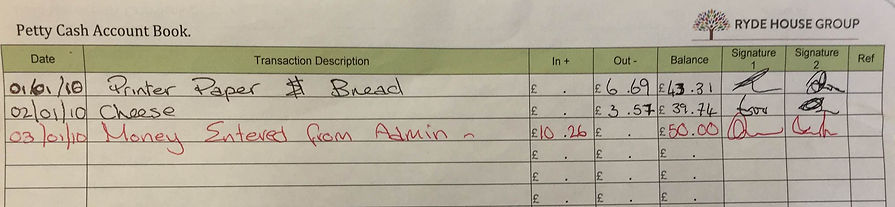 Petty Cash Account Book.
RYDE HOUSE GROUP
Date Transaction Description In + Out - Balance Signature 1 Signature 2 Ref
01/01/10 Printer Paper & Bread £ . £6.69 £43.31
02/01/10 Cheese £ . £3.57 £39.74
03/01/10 Money Entered from Admin - £10.26 £ . £50.00
£ . £ . £ .
£ . £ . £ .
£ . £ . £ .